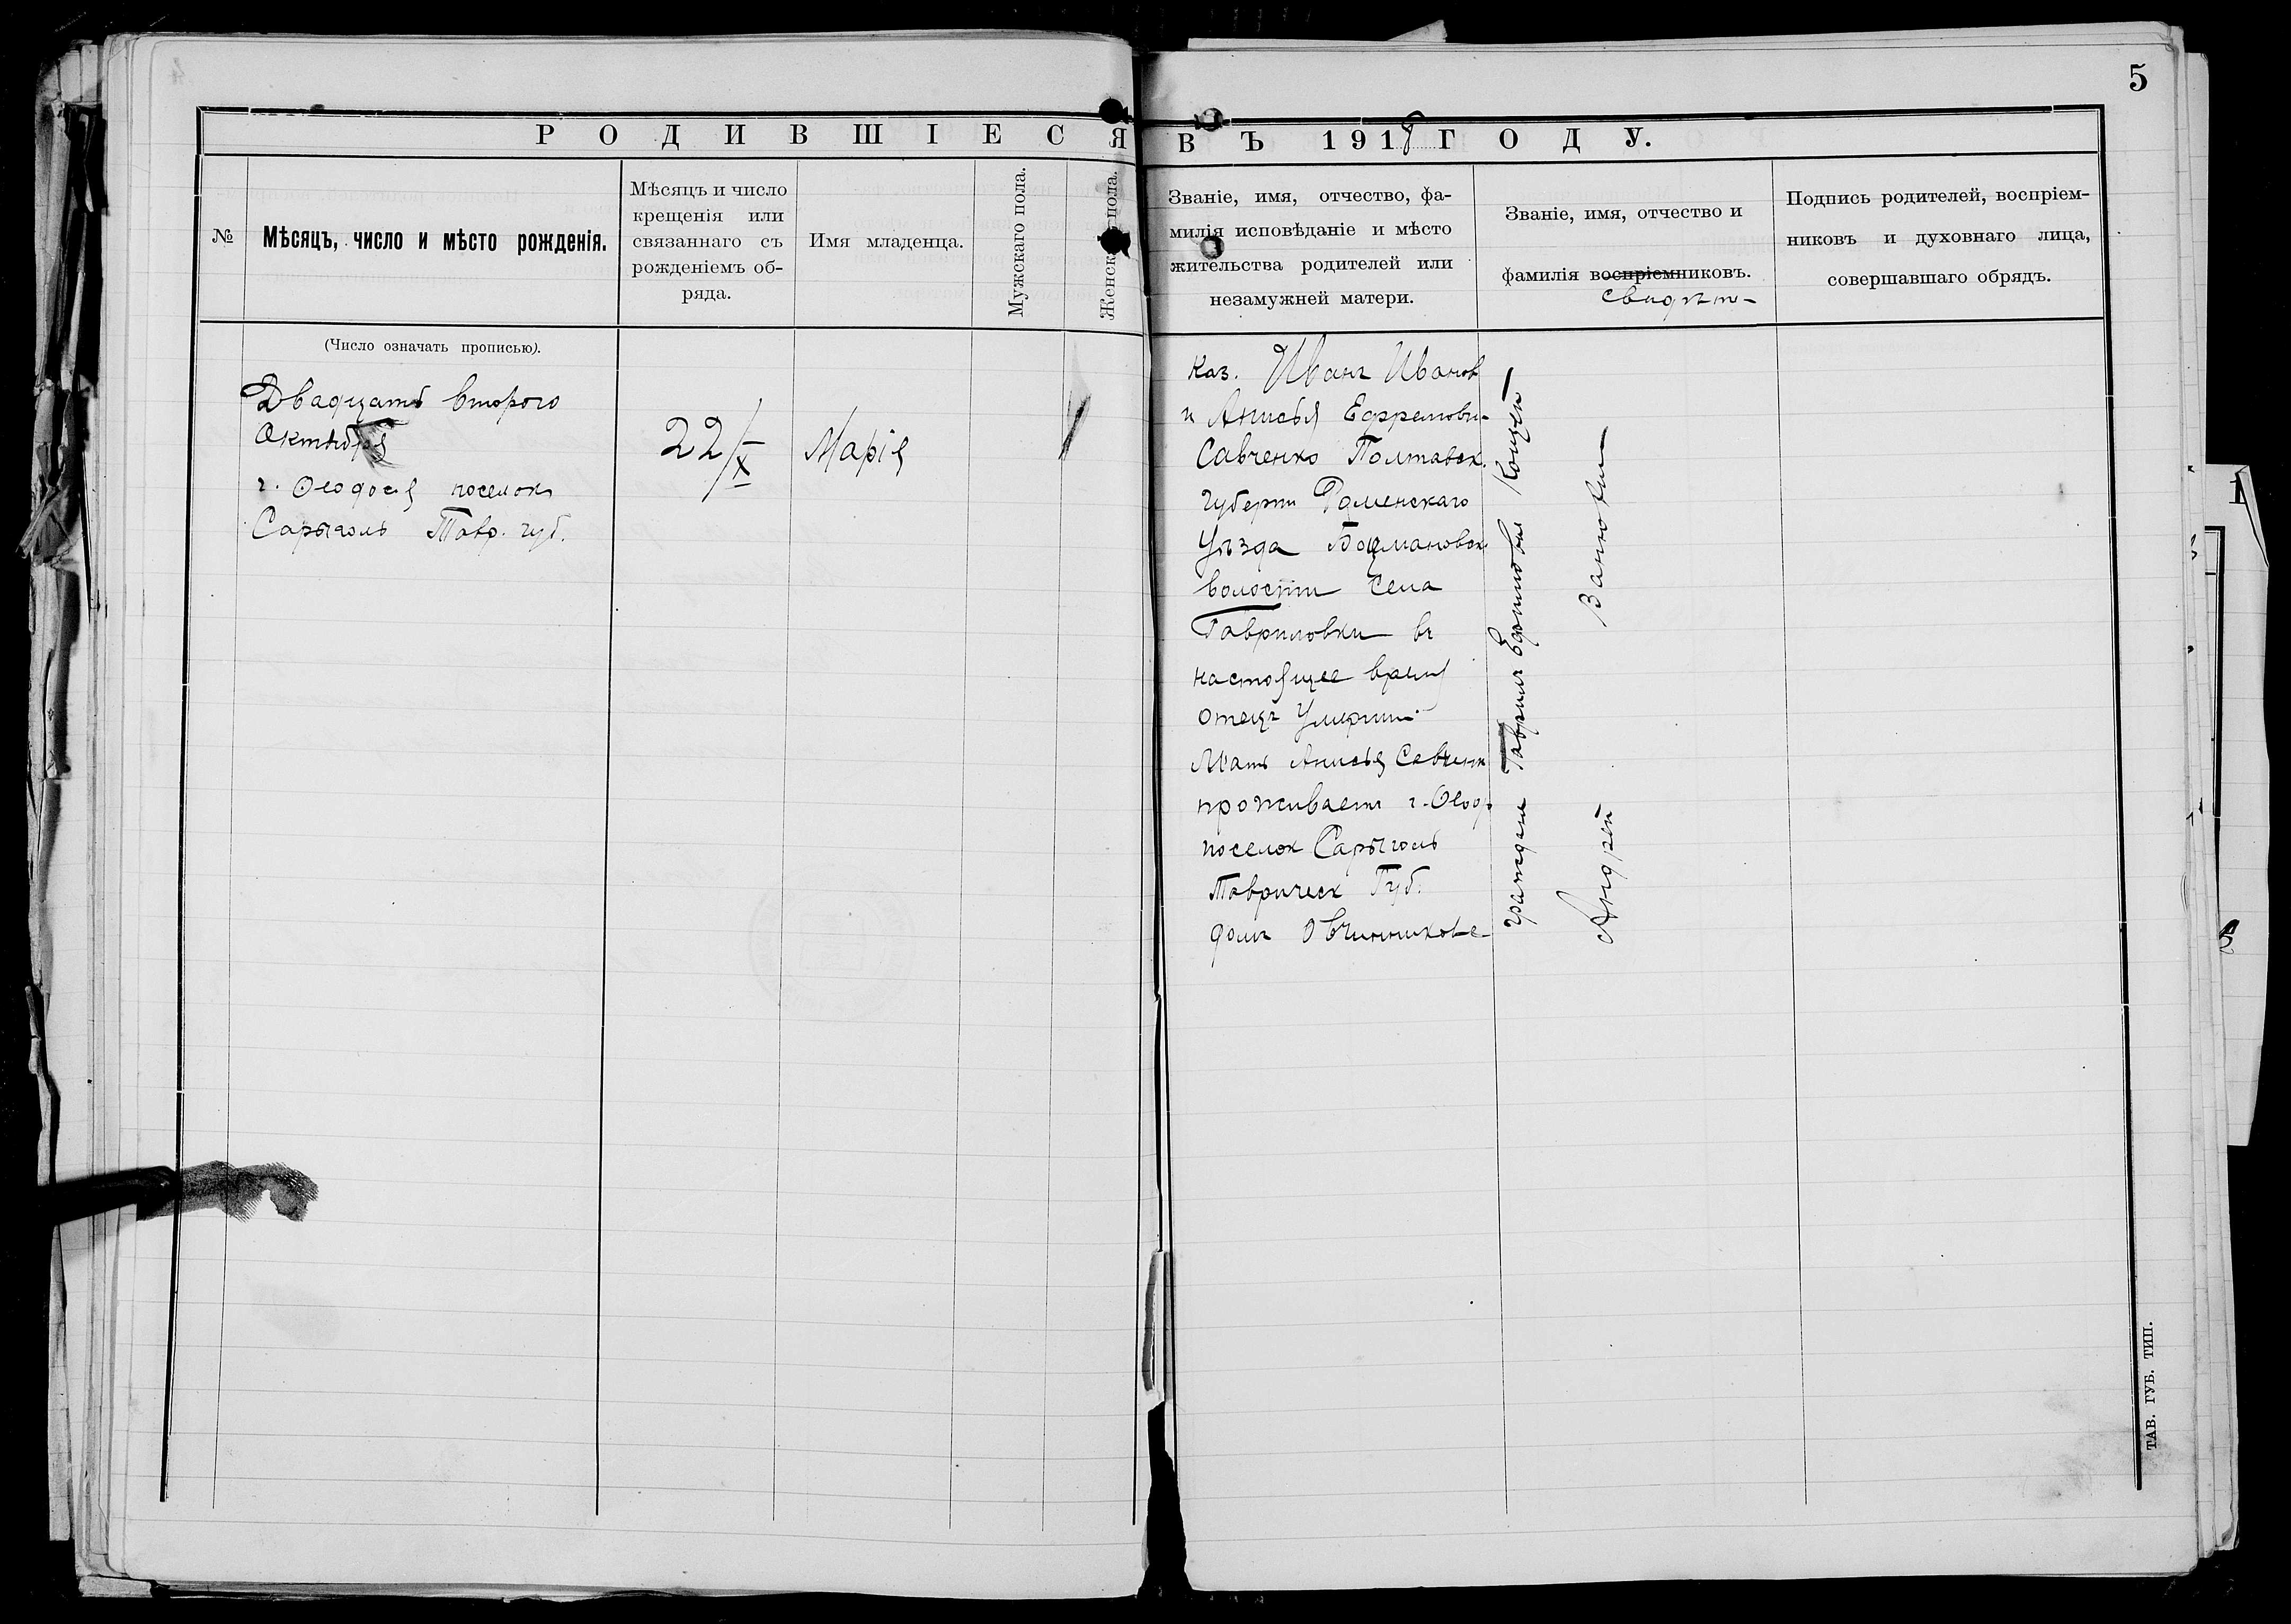 5
РОДИВШІЕСЯ ВЪ 1918 ГОДУ.
№
Мѣсяцъ, число и мѣсто рожденія.
Мѣсяцъ и число
крещенія или
связаннаго съ
рожденіемъ об-
ряда.
Имя младенца.
Мужскаго пола.
Женск пола.
Званіе, имя, отчество, фа-
милія исповѣданіе и мѣсто
жительства родителей или
незамужней матери.
Званіе, имя, отчество и
фамилія воспріемниковъ.
свидѣт-
Подпись родителей, воспріем-
никовъ и духовнаго лица,
совершавшаго обрядъ.
(Число означать прописью).
Двадцать второго
Октября
г. Ѳеодосія поселок
Сарыголь Тавр. губ.
22/X
Марія
1
Каз. Иванъ Иванов
и Анисья Ефремови-
Савченко Полтавск.
Губерти Роменскаго
Уѣзда
волости села
Гавриловки въ
настоящее время
отецъ Умерши.
Мать Анисья Савченк
проживает г. Ѳеод.
поселок Сарыголь
Таврическ Губ.
домъ Овчинникове
граждане Гаврилъ
Андрей
ТАВ. ГУБ. ТИП.